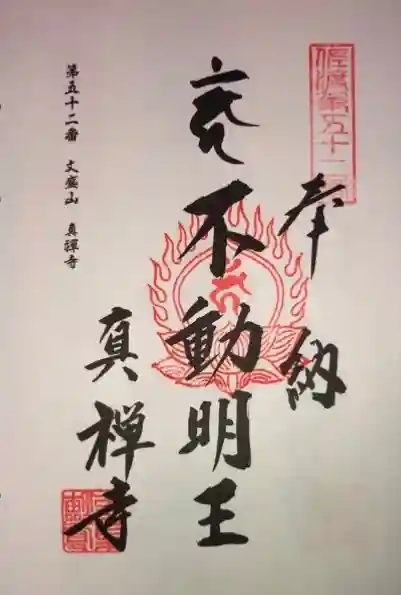 佐渡第五十二番
奉納
不動明王
真禅寺
第五十二番 文盛山 真禅寺